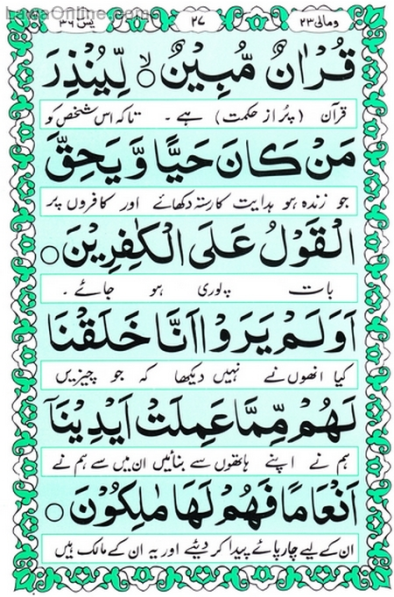 ومالی ۲۳ ۲۷ یٰسٓ ۳۶
قُرْاٰنٌ مُّبِيْنٌ ۙ لِّيُنْذِرَ
قرآن (پُر از حکمت) ہے ۔ تاکہ اس شخص کو
مَنْ كَانَ حَيًّا وَّيَحِقَّ
جو زندہ ہو ہدایت کا رستہ دکھائے اور کافروں پر
الْقَوْلُ عَلَى الْكٰفِرِيْنَ ○
بات پوری ہو جائے ۔
اَوَلَمْ يَرَوْا اَنَّا خَلَقْنَا
کیا انھوں نے نہیں دیکھا کہ جو چیزیں
لَهُمْ مِّمَّا عَمِلَتْ اَيْدِيْنَاۤ
ہم نے اپنے ہاتھوں سے بنائیں ان میں سے ہم نے
اَنْعَامًا فَهُمْ لَهَا مٰلِكُوْنَ ○
ان کے لیے چارپائے پیدا کر دیئے اور یہ ان کے مالک ہیں